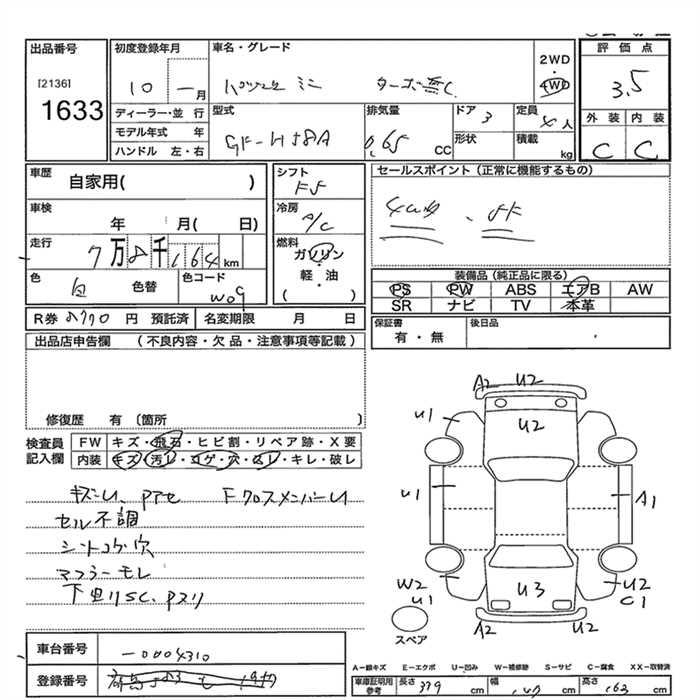 出品番号
[2136]
1633
初度登録年月
10 — 月
車名・グレード
ターボ無し
2WD
・
4WD
評価点
3.5
外装 内装
C C
ディーラー・並 行
モデル年式 年
ハンドル 左・右
型式
GF-H58A
排気量
0.65 CC
ドア 3
形状
定員 4 人
積載 kg
車歴
自家用( )
車検
年 月( 日)
走行
7万8千164km
色 白 色替
色コード W09
シフト
F5
冷房
A/C
燃料
ガソリン
・
軽・油
( )
セールスポイント（正常に機能するもの）
4WD 、5F
装備品（純正品に限る）
PS PW ABS エアB AW
SR ナビ TV 本革
R券 8770 円 預託済 名変期限 月 日
保証書
有・無
後日品
出品店申告欄 （不良内容・欠品・注意事項等記載）
修復歴 有（箇所 ）
検査員
記入欄
FW キズ・飛石・ヒビ割・リペア跡・X要
内装 キズ・汚レ・コゲ・穴・スレ・キレ・破レ
キズ凹、Pアセ Fクロスメンバー凹
セル不調
シートコゲ穴
マフラーモレ
下回りSC、Pスリ
A2 U2
U1
U2
U1
A1
W2
U1
U3
U2
C1
A2
U2
スペア
車台番号
-0004310
登録番号
A－線キズ E－エクボ U－凹み W－補修跡 S－サビ C－腐食 XX－取替済
車庫証明用
参考
長さ 339 cm
幅 147 cm
高さ 163 cm